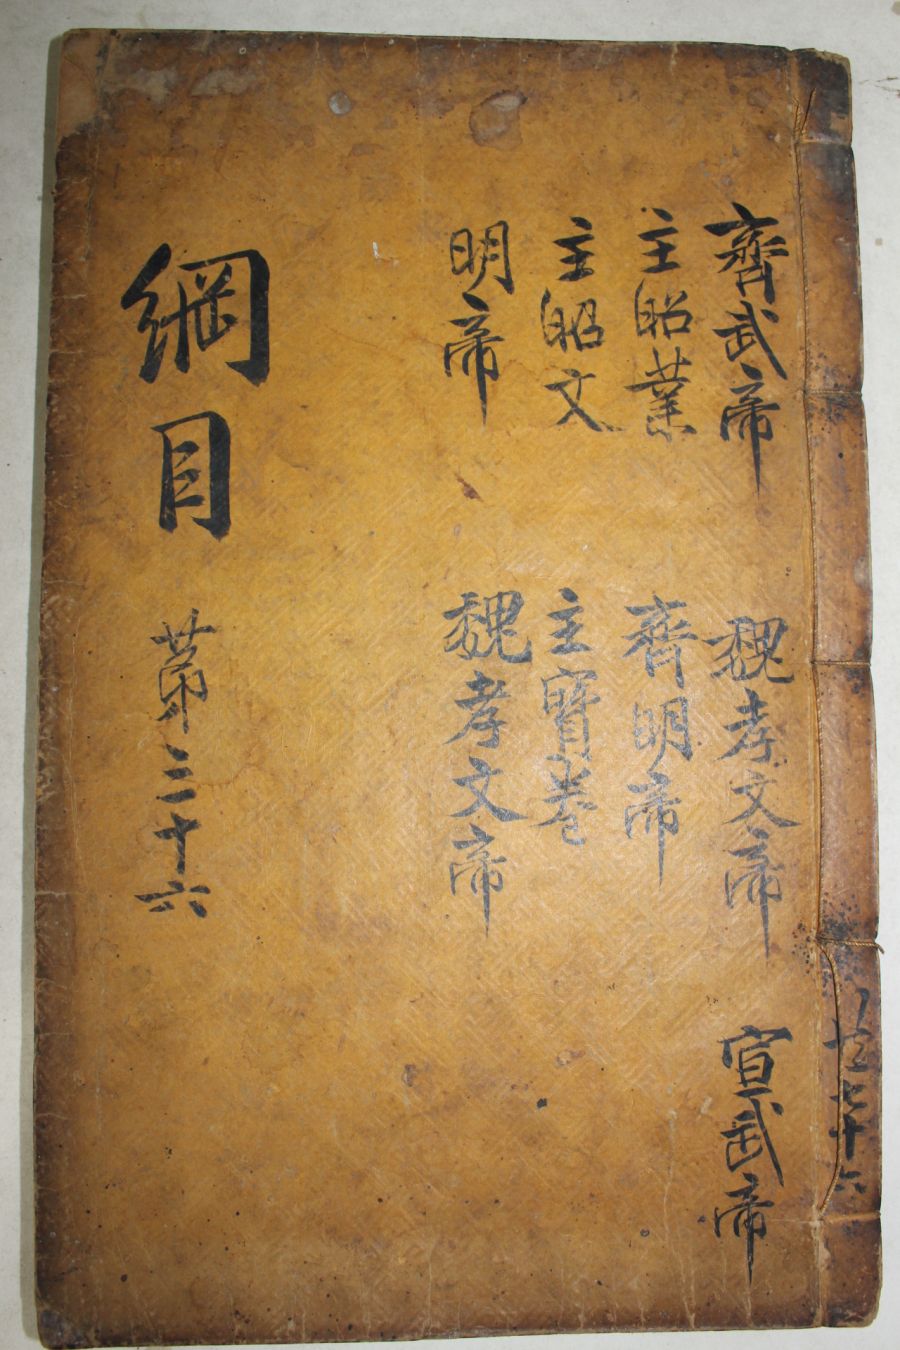 齊武帝
主昭業
主昭文
明帝
魏孝文帝
齊明帝
主寶卷
魏孝文帝
宣武帝
綱目
第三十六